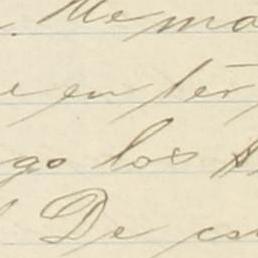 . Me ma
e en tér
go los
De es